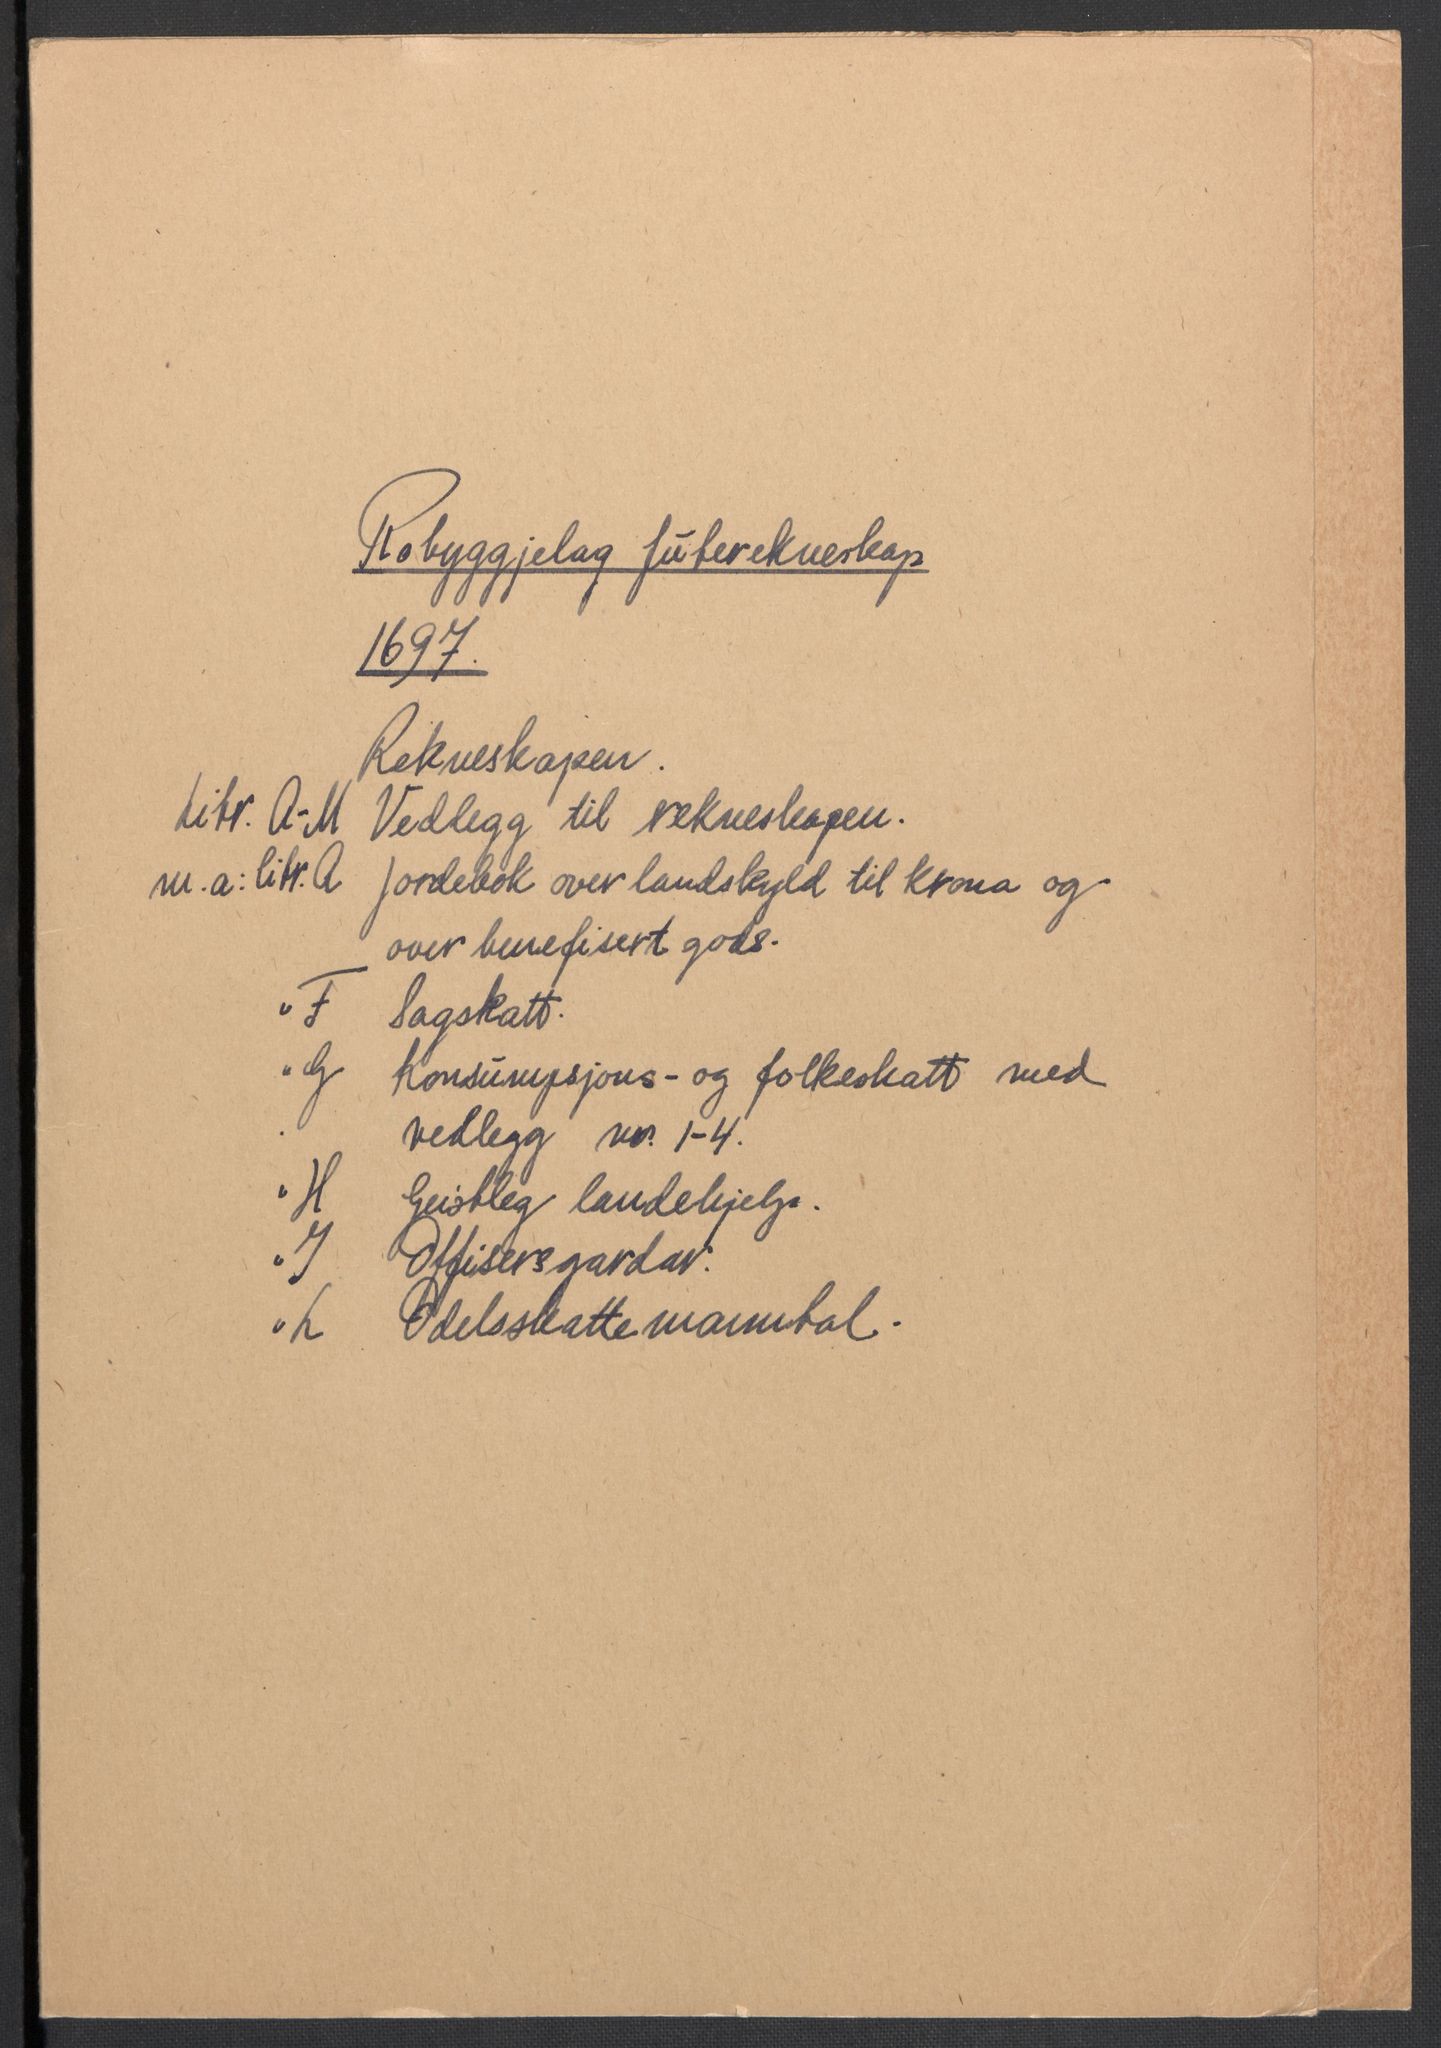 Robyggjelag futerekneskap
1697.
Rekneskapen.
Litr. A-M Vedlegg til rekneskapen.
m.a: litr. A Jordebok over landskyld til krona og
over benefisert gods.
" F Sagskatt.
" G Konsumpsjons- og folkeskatt med
vedlegg nr. 1-4.
" H Geistleg landehjelp.
" I Offisersgardar.
" L Odelsskattemanntal.